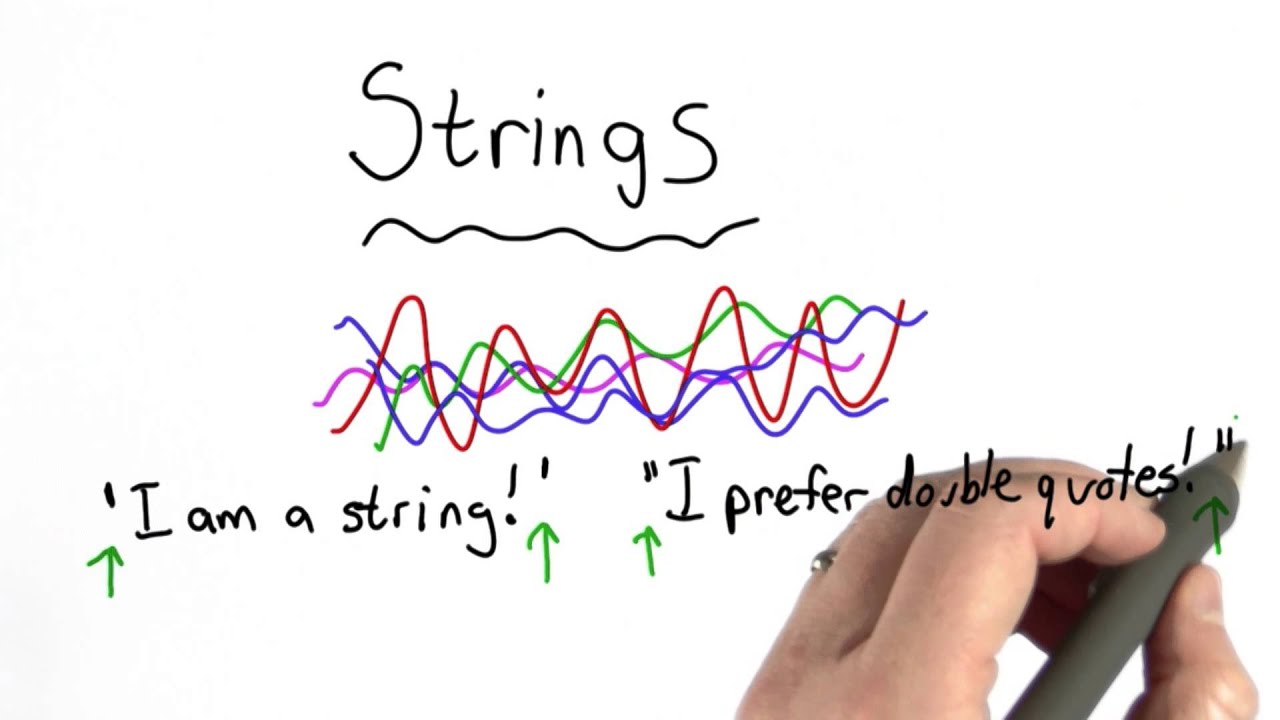 Strings
'I am a string!' "I prefer double quotes!"